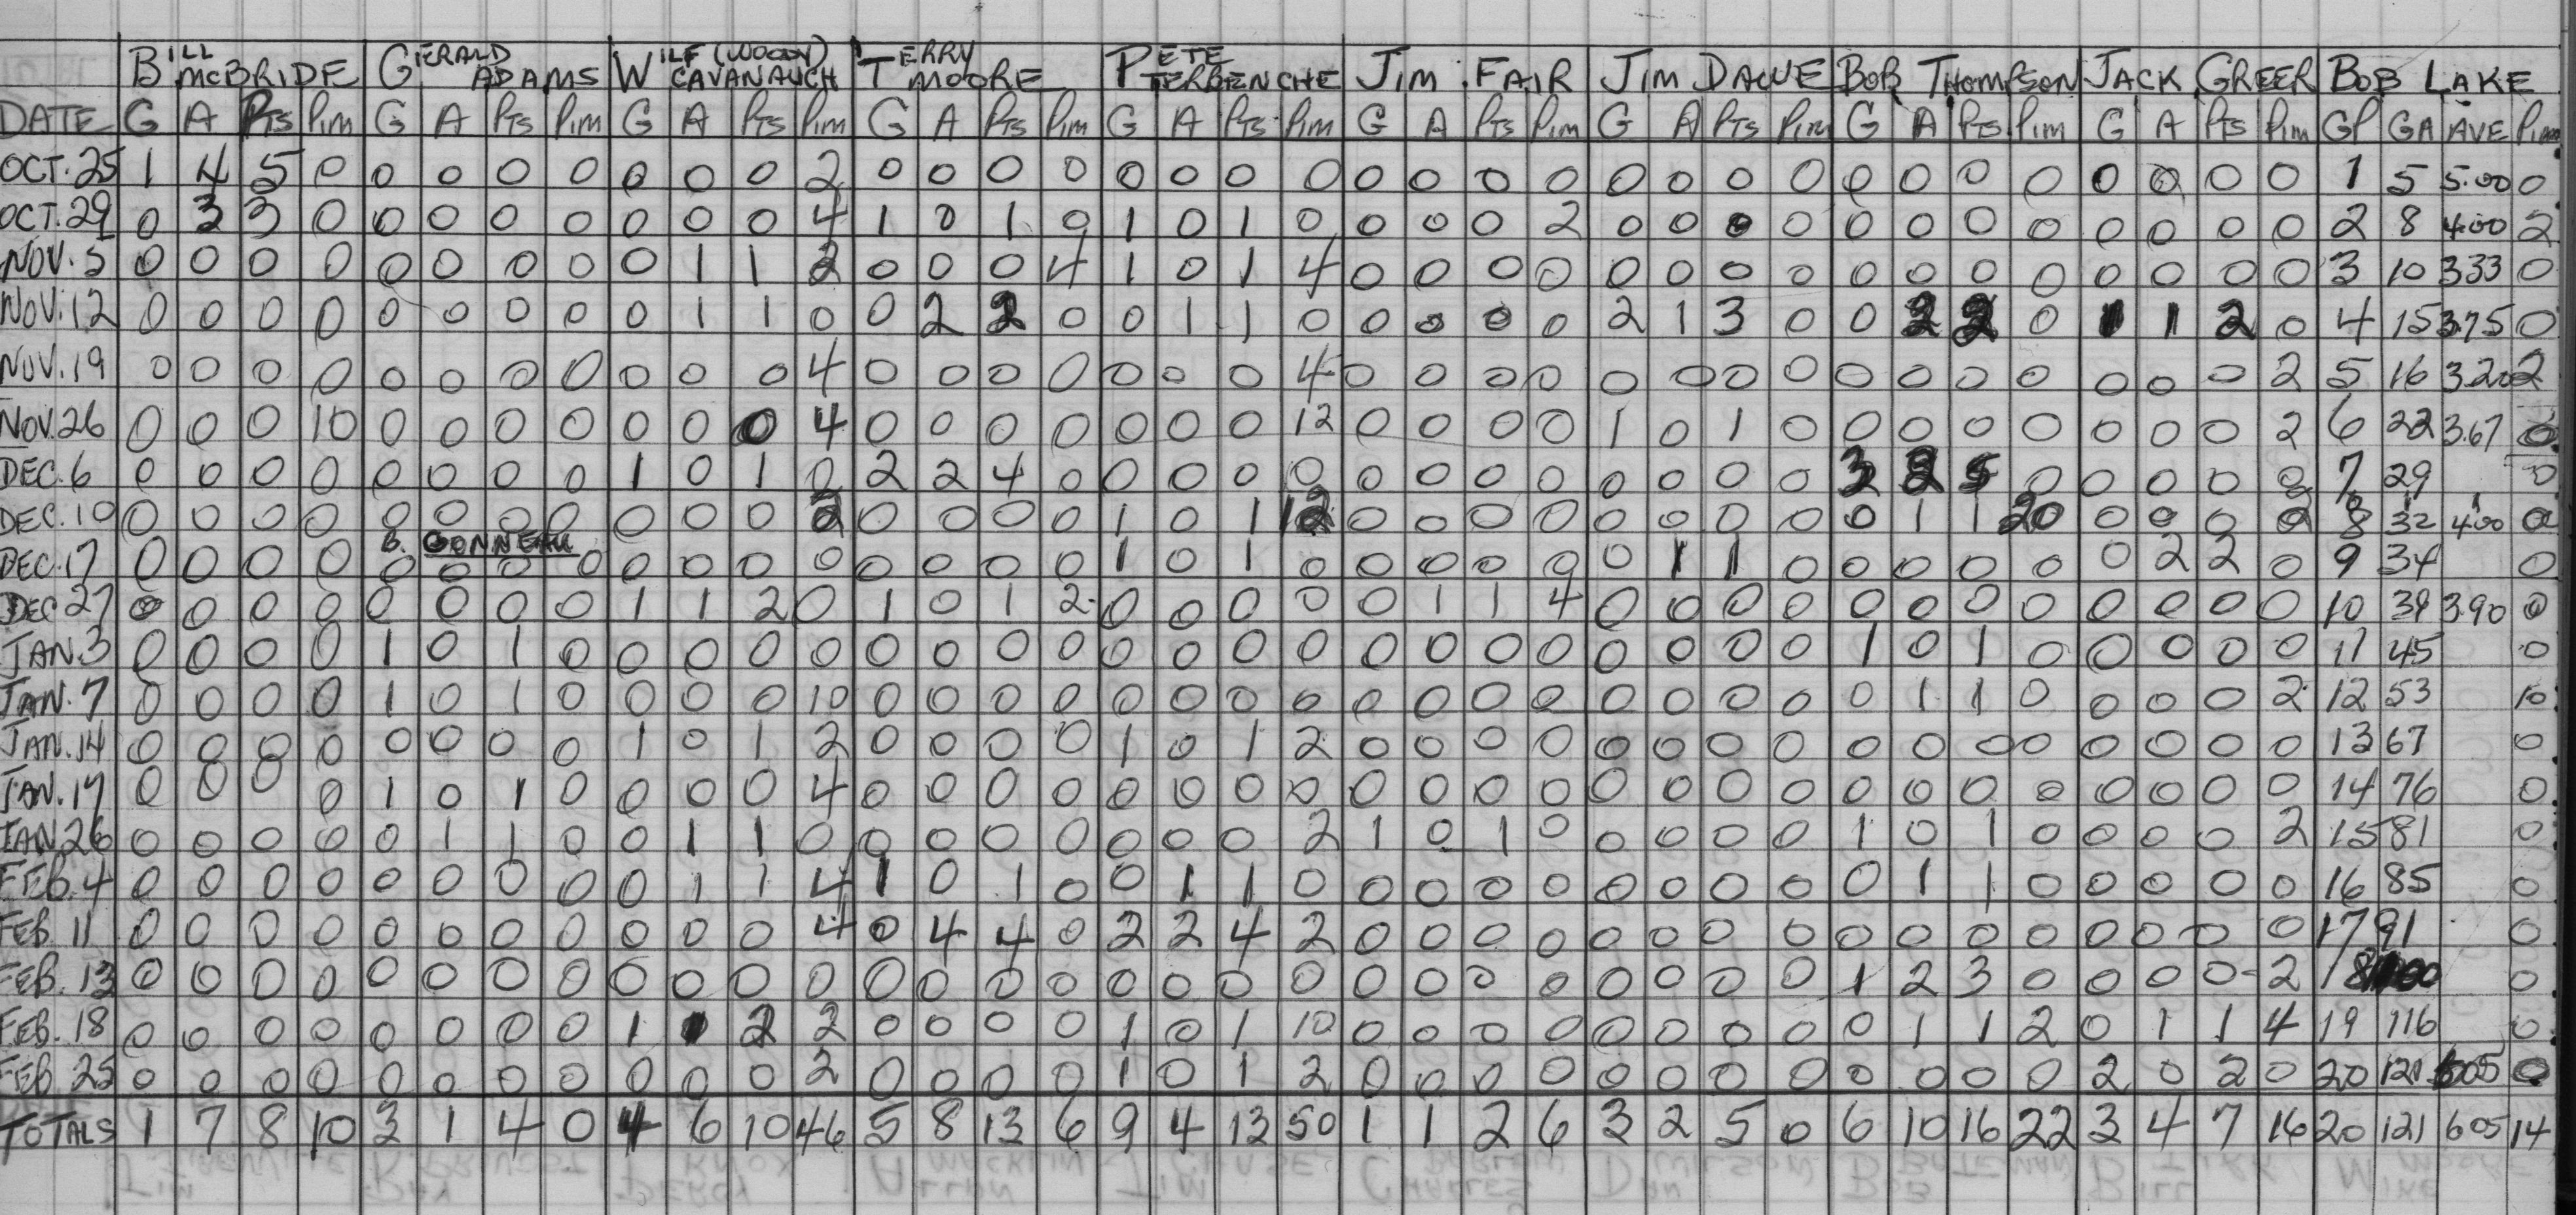 BILL McBRIDE GERALD ADAMS WILF (WOODY) CAVANAUGH TERRY MOORE PETE TERBENCHE JIM FAIR JIM DAWE BOB THOMPSON JACK GREER BOB LAKE
DATE G A PTS PIM G A PTS PIM G A PTS PIM G A PTS PIM G A PTS PIM G A PTS PIM G A PTS PIM G A PTS PIM G A PTS PIM GP GA AVE PIM
OCT. 25 1 4 5 0 0 0 0 0 0 0 0 2 0 0 0 0 0 0 0 0 0 0 0 0 0 0 0 0 0 0 0 0 0 0 0 0 1 5 5.00 0
OCT. 29 0 3 3 0 0 0 0 0 0 0 0 4 1 0 1 0 1 0 1 0 0 0 0 2 0 0 0 0 0 0 0 0 0 0 0 0 2 8 4.00 2
NOV. 5 0 0 0 0 0 0 0 0 0 1 1 2 0 0 0 4 1 0 1 4 0 0 0 0 0 0 0 0 0 0 0 0 0 0 0 0 3 10 3.33 0
NOV. 12 0 0 0 0 0 0 0 0 0 1 1 0 0 2 2 0 0 1 1 0 0 0 0 0 2 1 3 0 0 2 2 0 1 1 2 0 4 15 3.75 0
NOV. 19 0 0 0 0 0 0 0 0 0 0 0 4 0 0 0 0 0 0 0 4 0 0 0 0 0 0 0 0 0 0 0 0 0 0 0 2 5 16 3.20 2
NOV. 26 0 0 0 10 0 0 0 0 0 0 0 4 0 0 0 0 0 0 0 12 0 0 0 0 1 0 1 0 0 0 0 0 0 0 0 2 6 22 3.67 0
DEC. 6 0 0 0 0 0 0 0 0 1 0 1 0 2 2 4 0 0 0 0 0 0 0 0 0 0 0 0 0 3 2 5 0 0 0 0 0 7 29 0
DEC. 10 0 0 0 0 0 0 0 0 0 0 0 2 0 0 0 0 1 0 1 12 0 0 0 0 0 0 0 0 0 1 1 20 0 0 0 2 8 32 4.00 0
B. GONNEAU
DEC. 17 0 0 0 0 0 0 0 0 0 0 0 0 0 0 0 0 1 0 1 0 0 0 0 0 0 1 1 0 0 0 0 0 0 2 2 0 9 34 0
DEC 27 0 0 0 0 0 0 0 0 1 1 2 0 1 0 1 2 0 0 0 0 0 1 1 4 0 0 0 0 0 0 0 0 0 0 0 0 10 39 3.90 0
JAN. 3 0 0 0 0 1 0 1 0 0 0 0 0 0 0 0 0 0 0 0 0 0 0 0 0 0 0 0 0 1 0 1 0 0 0 0 0 11 45 0
JAN. 7 0 0 0 0 1 0 1 0 0 0 0 10 0 0 0 0 0 0 0 0 0 0 0 0 0 0 0 0 0 1 1 0 0 0 0 2 12 53 10
JAN. 14 0 0 0 0 0 0 0 0 1 0 1 2 0 0 0 0 1 0 1 2 0 0 0 0 0 0 0 0 0 0 0 0 0 0 0 0 13 67 0
JAN. 17 0 0 0 0 1 0 1 0 0 0 0 4 0 0 0 0 0 0 0 0 0 0 0 0 0 0 0 0 0 0 0 0 0 0 0 0 14 76 0
JAN 26 0 0 0 0 0 1 1 0 0 1 1 0 0 0 0 0 0 0 0 2 1 0 1 0 0 0 0 0 1 0 1 0 0 0 0 2 15 81 0
FEB. 4 0 0 0 0 0 0 0 0 0 1 1 4 1 0 1 0 0 1 1 0 0 0 0 0 0 0 0 0 0 1 1 0 0 0 0 0 16 85 0
FEB. 11 0 0 0 0 0 0 0 0 0 0 0 4 0 4 4 0 2 2 4 2 0 0 0 0 0 0 0 0 0 0 0 0 0 0 0 0 17 91 0
FEB. 13 0 0 0 0 0 0 0 0 0 0 0 0 0 0 0 0 0 0 0 0 0 0 0 0 0 0 0 0 1 2 3 0 0 0 0 2 18 100 0
FEB. 18 0 0 0 0 0 0 0 0 1 1 2 2 0 0 0 0 1 0 1 10 0 0 0 0 0 0 0 0 0 1 1 2 0 1 1 4 19 116 0
FEB. 25 0 0 0 0 0 0 0 0 0 0 0 2 0 0 0 0 1 0 1 2 0 0 0 0 0 0 0 0 0 0 0 0 2 0 2 0 20 121 605 0
TOTALS 1 7 8 10 3 1 4 0 4 6 10 46 5 8 13 6 9 4 13 50 1 1 2 6 3 2 5 0 6 10 16 22 3 4 7 16 20 121 605 14